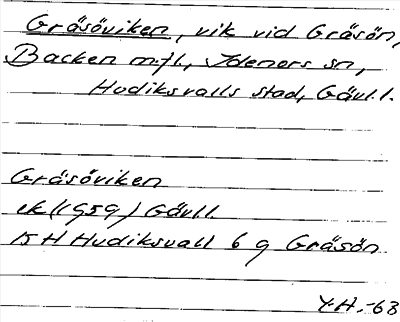 Gräsöviken, vik vid Gräsön,
Backen m.fl., Idenors sn,
Hudiksvalls stad, Gävl.l.
Gräsöviken
ek (1959) Gävl.l.
15 H Hudiksvall 6 g Gräsön
Y.H.-63